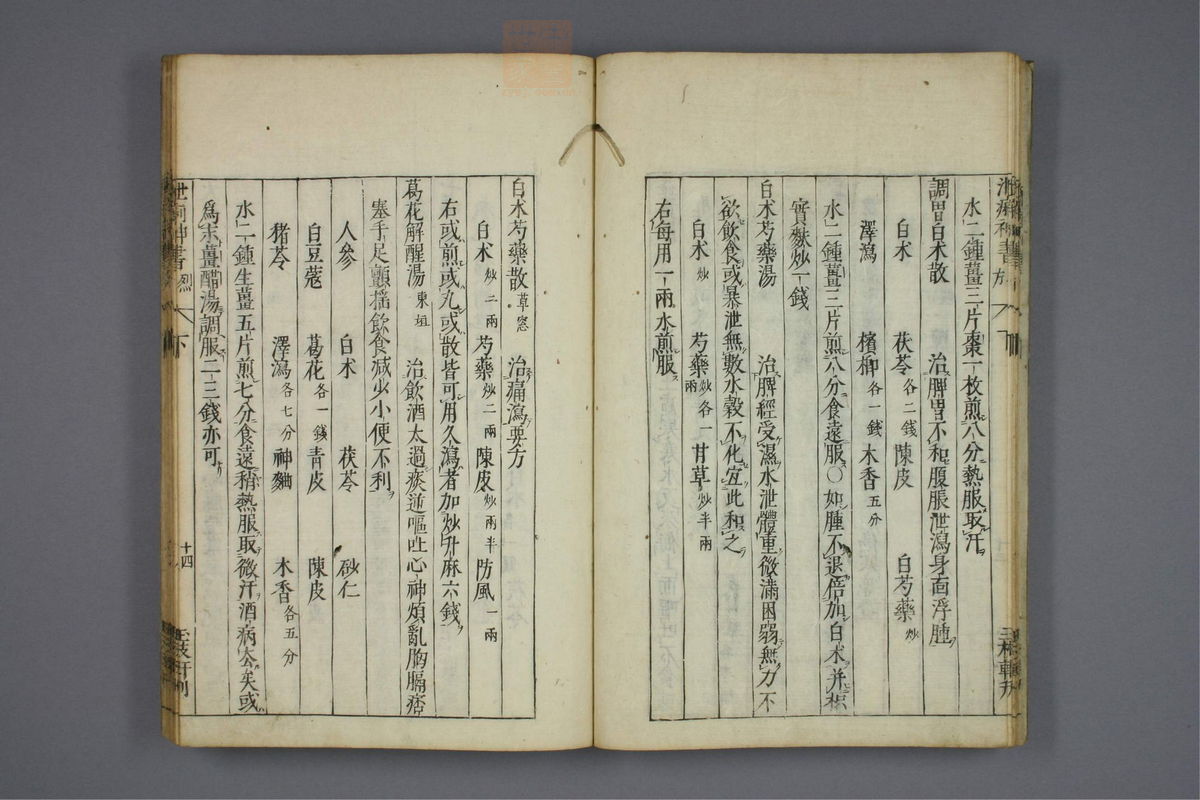 水二鍾薑三片棗一枚煎八分熱服取汗
調胃白朮散　治脾胃不和腹脹泄瀉身面浮腫
白朮　茯苓各二錢　陳皮　白芍藥炒
澤瀉　檳榔各一錢　木香五分
水二鍾薑三片煎八分食遠服〇如腫不退倍加白朮并枳
實麩炒一錢
白朮芍藥湯　治脾經受濕水泄體重微滿困弱無力不
欲飲食或暴泄無數水穀不化宜此和之
白朮炒　芍藥炒各一兩　甘草炒半兩
右每用一兩水煎服
白朮芍藥散草窓　治痛瀉要方
白朮炒二兩　芍藥炒二兩　陳皮炒兩半　防風一兩
右或煎或丸或散皆可用久瀉者加炒升麻六錢
葛花解醒湯東垣　治飲酒太過痰逆嘔吐心神煩亂胸膈痞
塞手足顫搖飲食減少小便不利
人參　白朮　茯苓　砂仁
白豆蔻　葛花各一錢　青皮　陳皮
豬苓　澤瀉各七分　神麯　木香各五分
水二鍾生薑五片煎七分食遠稍熱服取微汗酒病去矣或
爲末薑醋湯調服二三錢亦可
下
十四